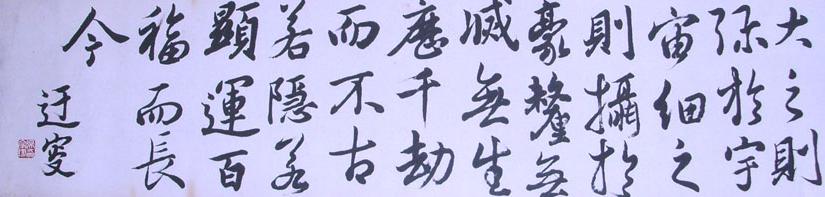 大之則
弥於宇
宙細之
則攝於
豪釐無
滅無生
歷千劫
而不古
若隱若
顯運百
福而長
今
迂叟